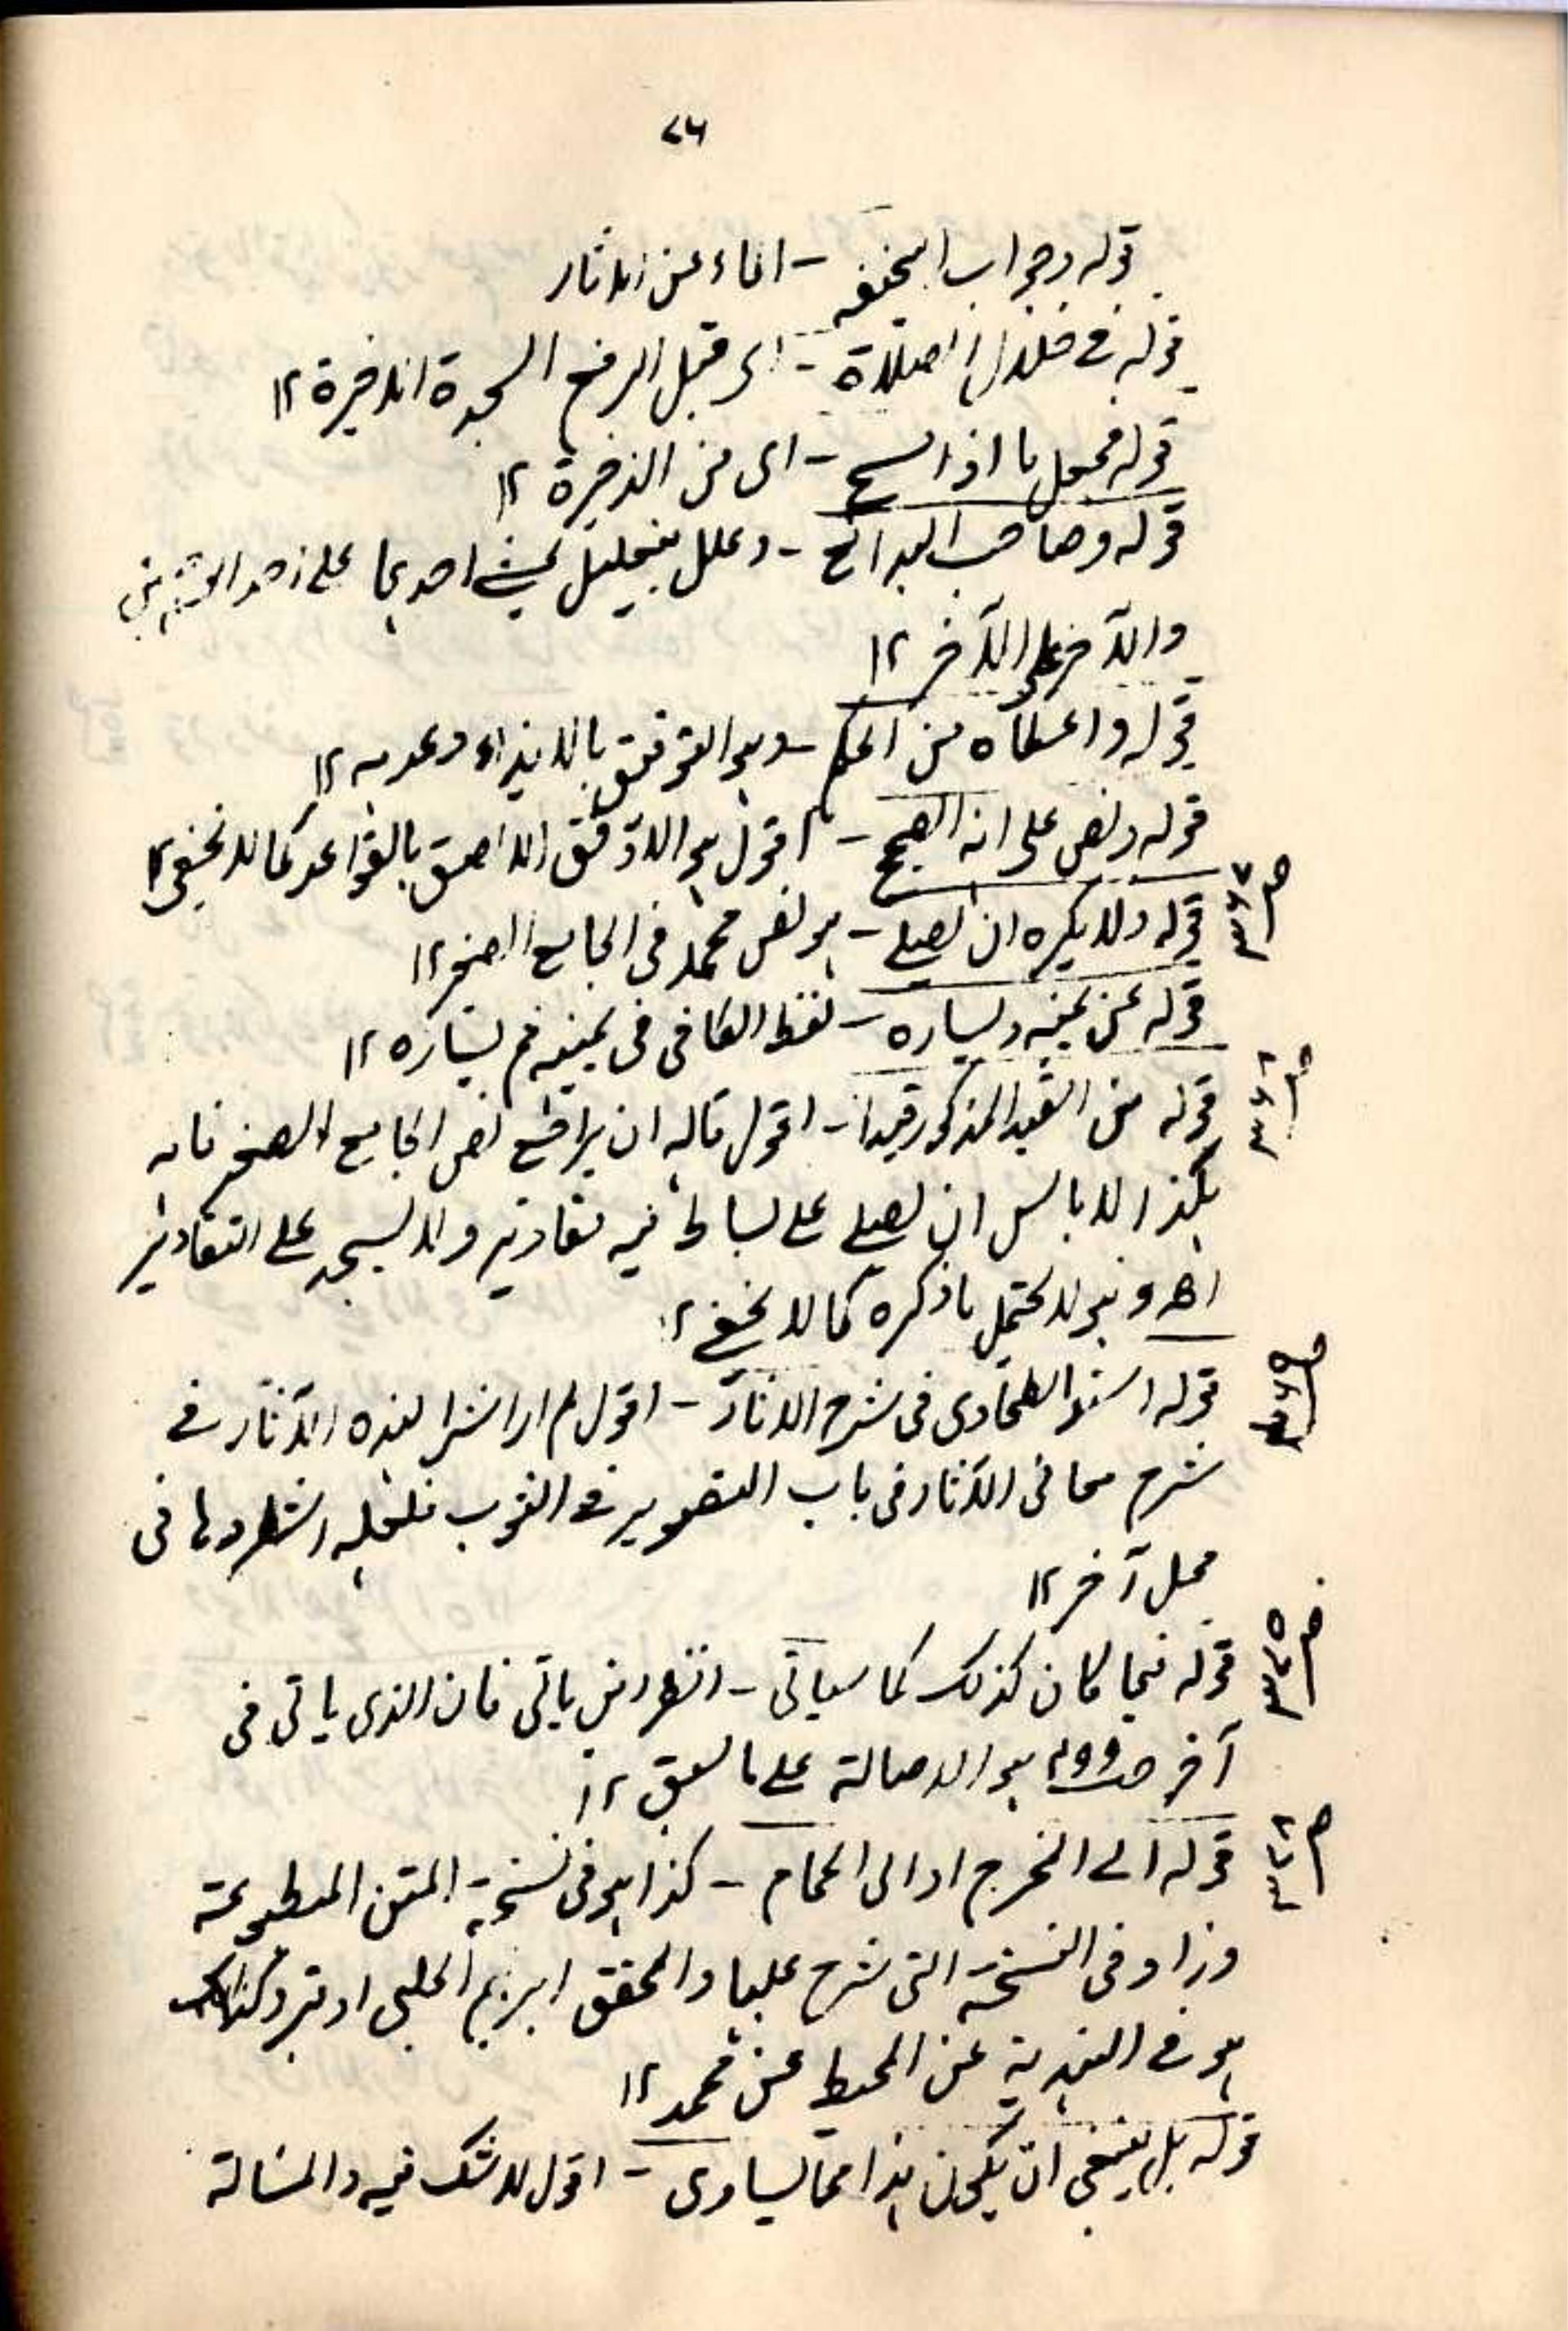 ٧٦
قوله وجواب ابيحنيفه - اى عن الاثار
قوله فى خلال الصلاة - اى قبل الرفع السجدة الاخيرة ١٢
قوله محمل ما اذا مسح - اى من الذخيرة ١٢
قوله وصاحب البدائع - وعلل بتعليل يمشى احدهما على احد
والآخر على الآخر ١٢
قوله واعطاه من الحكم - وهو التوفيق بالايذاء وعدمه ١٢
قوله ونص على انه الصحيح - اقول هو الاوفق الالصق بالقواعد كما لا يخفى ١٢
ص٣٦٧
قوله ولا يكره ان يصلى - هو نص محمد فى الجامع الصغير ١٢
قوله عن يمينه ويساره - لفظ الكافى فى يمينه ثم يساره ١٢
ص٣٦٨
قوله من القيد المذكور قيدا - اقول ماله ان يراجع نص الجامع الصغير فانه
هكذا لا باس ان يصلى على بساط فيه تصاوير ولا يسجد على التصاوير
اھ وهو لا يحتمل ما ذكره كما لا يخفى ١٢
ص٣٦٩
قوله اسند الطحاوى فى شرح الآثار - اقول لم ار اثرا لهذه الآثار فى
شرح معانى الآثار فى باب التصوير فى الثوب فلعله استطردها فى
محل آخر ١٢
ص٣٧٥
قوله فيما كان كذلك كما سياتى - انظر اين ياتى فان الذى ياتى فى
آخر هو الاحالة على ما سبق ١٢
ص٣٧٦
قوله الى المخرج او الى الحمام - كذا هو فى نسخة المتن المطبوعة
وزاد فى النسخة التى شرح عليها المحقق ابرهيم الحلبى او قبر وكذلك
هو فى الهندية عن المحيط عن محمد ١٢
قوله بل ينبغى ان يكون هذا مما يساوى - اقول لا شك فيه والمسالة